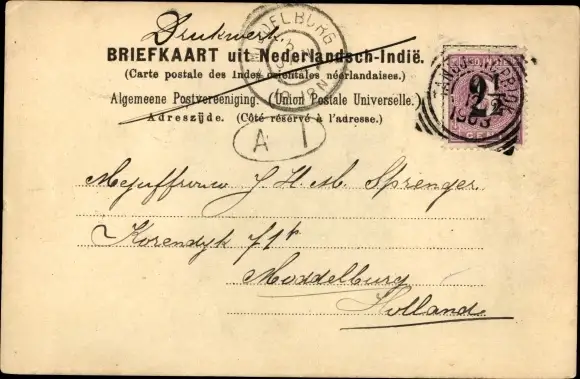 Drukwerk
BRIEFKAART uit Nederlandsch-Indië.
(Carte postale des Indes orientales néerlandaises.)
Algemeene Postvereeniging. (Union Postale Universelle.)
Adreszijde. (Côté réservé à l'adresse.)
MIDDELBURG
2½
1903
A 1
Mejuffrouw J. H. M. Sprenger
Korendyk
Middelburg
Holland